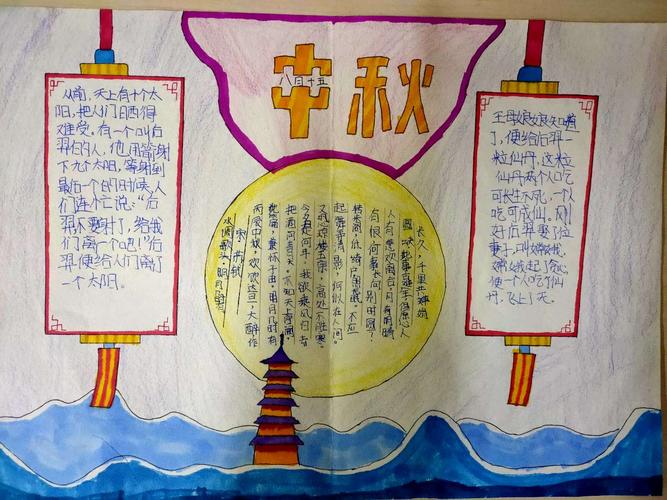 中秋
八月十五
从前，天上有十个太
阳，把人们日晒得
难受。有一个叫后
羿的人，他用箭射
下九个太阳，等射到
最后一个的时候，人
们连忙说："后
羿不要射了，给我
们留一个吧！"后
羿便给人们留了
一个太阳。
水调歌头·明月几时有
宋 苏轼
丙辰中秋，欢饮达旦，大醉作
此篇，兼怀子由。明月几时有
把酒问青天。不知天上宫阙，
今夕是何年。我欲乘风归去
又恐琼楼玉宇，高处不胜寒。
起舞弄清影，何似在人间。
转朱阁，低绮户，照无眠。不应
有恨，何事长向别时圆？
人有悲欢离合，月有阴晴
圆缺，此事古难全。但愿人
长久，千里共婵娟
王母娘娘知道
了，便给后羿一
粒仙丹，这粒
仙丹两个人吃
可长生不死，一个人
吃可成仙。刚
好后羿娶了位
妻子，叫嫦娥，
嫦娥起了贪心，
便一个人吃了仙
丹，飞上了天。